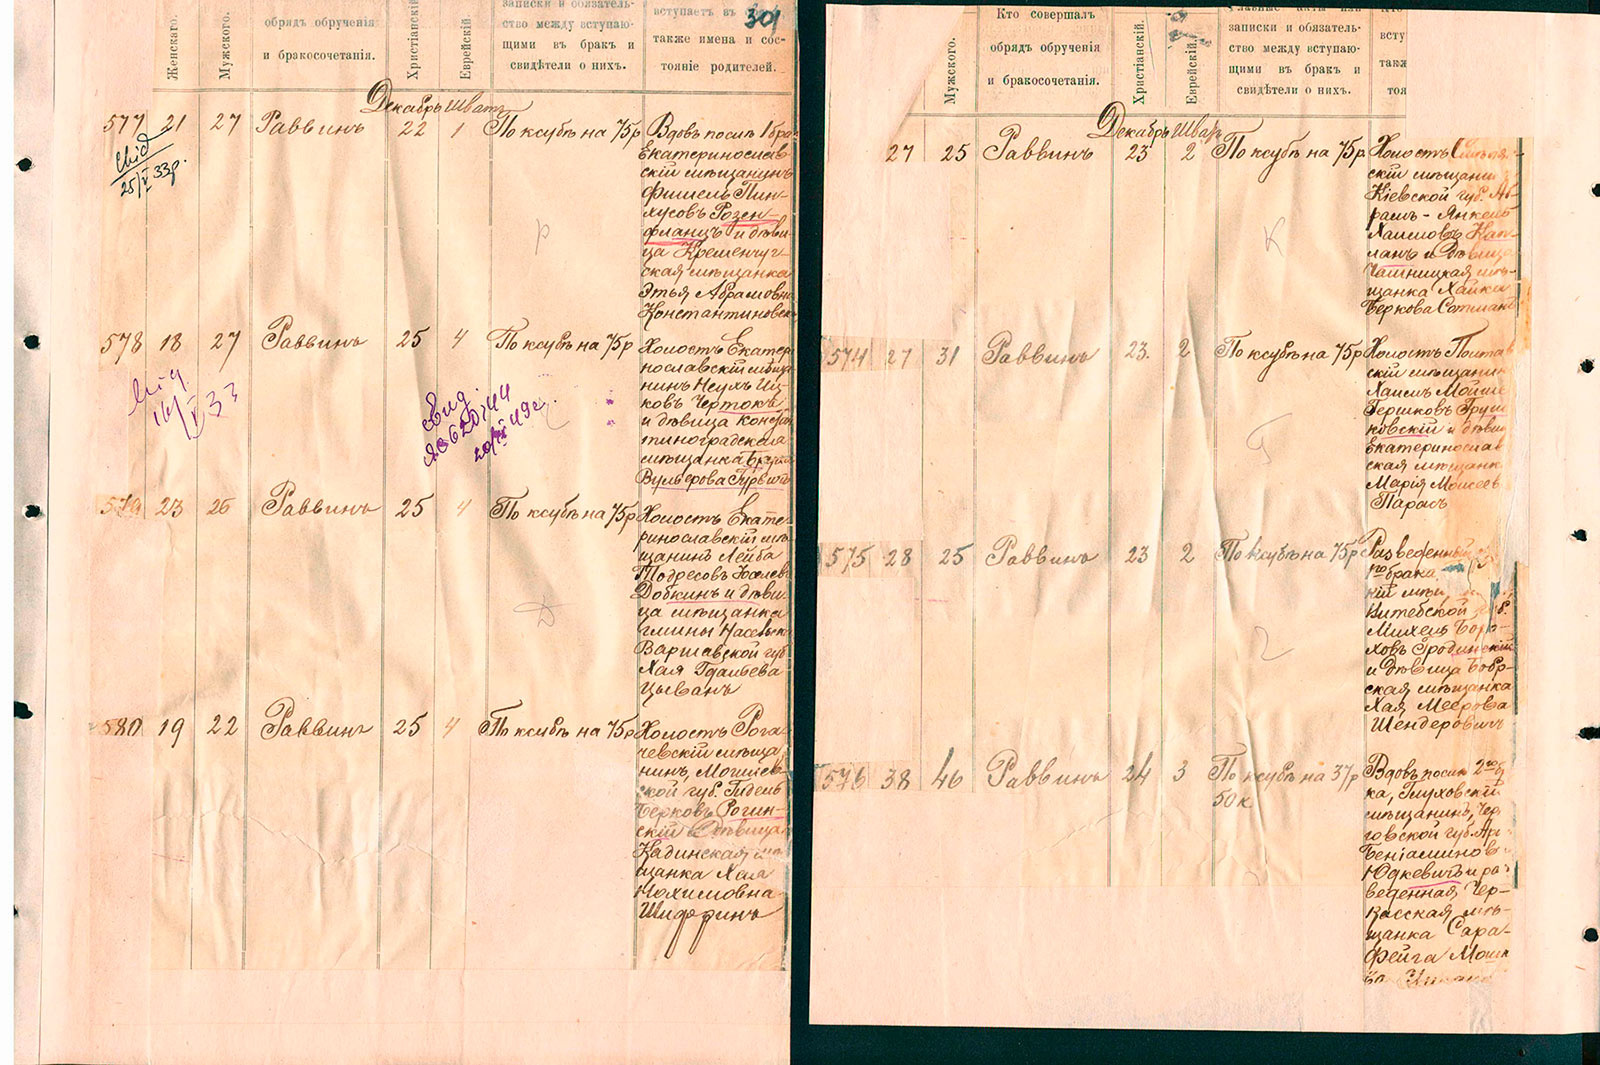 301
Женскаго.
Мужского.
обрядъ обрученія
и бракосочетанія.
Христіанскій
Еврейскій
записки и обязатель-
ство между вступаю-
щими въ бракъ и
свидѣтели о нихъ.
вступаетъ въ
также имена и сос-
тояніе родителей.
Декабрь Шватъ
577 21 27 Раввинъ 22 1 По ксубѣ на 75р
Вдовъ послѣ 1 бра
Екатеринослав-
скій мѣщанинъ
Фишель Пин-
хусовъ Розен-
фланцъ и дѣви-
ца Кременчуг-
ская мѣщанка
Этья Абрамовна
Константиновск
25/V 33р.
578 18 27 Раввинъ 25 4 По ксубѣ на 75р
Холостъ Екатер
нославскій мѣща
нинъ Неухъ Иц-
ковъ Чертокъ
и дѣвица констан
тиноградская
мѣщанка
Вульфова Гурвичъ
579 23 26 Раввинъ 25 4 По ксубѣ на 75р
Холостъ Екате-
ринославскій мѣ
щанинъ Лейба
Тодресовъ
Добкинъ и дѣви
ца мѣщанка
гмины Насельск
Варшавской губ
Хая Гдальева
Цыванъ
580 19 22 Раввинъ 25 4 По ксубѣ на 75р
Холостъ Рога
чевскій мѣща
нинъ, Могилев-
ской губ. Гидель
Берковъ Рогин-
скій и Дѣвица
Кадинская мѣ
щанка Хая
Нохимовна
Шифринъ
Мужского.
Кто совершалъ
обрядъ обрученія
и бракосочетанія.
Христіанскій.
Еврейскій.
Главные акты или
записки и обязатель-
ство между вступаю-
щими въ бракъ и
свидѣтели о нихъ.
Кто
всту
также
тоя
Декабрь Шватъ
27 25 Раввинъ 23 2 По ксубѣ на 75р
Холостъ
скій мѣщанин
Кіевской губ. Аб-
рамъ-Янкель
Хаимовъ Кап-
ланъ и Дѣвица
Чашницкая мѣ-
щанка Хайка
Беркова
574 27 31 Раввинъ 23. 2 По ксубѣ на 75р
Холостъ Полтав
скій мѣщанин
Хаимъ Мойше
Гершковъ Груш
ковскій и дѣвиц
Екатеринослав
ская мѣщанк
Марія Моисеев
Парасъ
575 28 25 Раввинъ 23 2 По ксубѣ на 75р
Разведенный
брака
кій мѣщ
Витебской губ.
Михель Боро-
ховъ Гродинскій
и дѣвица Бобр-
ская мѣщанка
Хая Меерова
Шендеровичъ
576 38 46 Раввинъ 24 3 По ксубѣ на 37р
50к
Вдовъ послѣ 2го б
ка, Глуховскій
мѣщанинъ, Чер
говской губ.
Беніаминовъ
Юдкевичъ и раз
веденная Чер-
касская мѣ-
щанка Сара-
Фейга Мошк